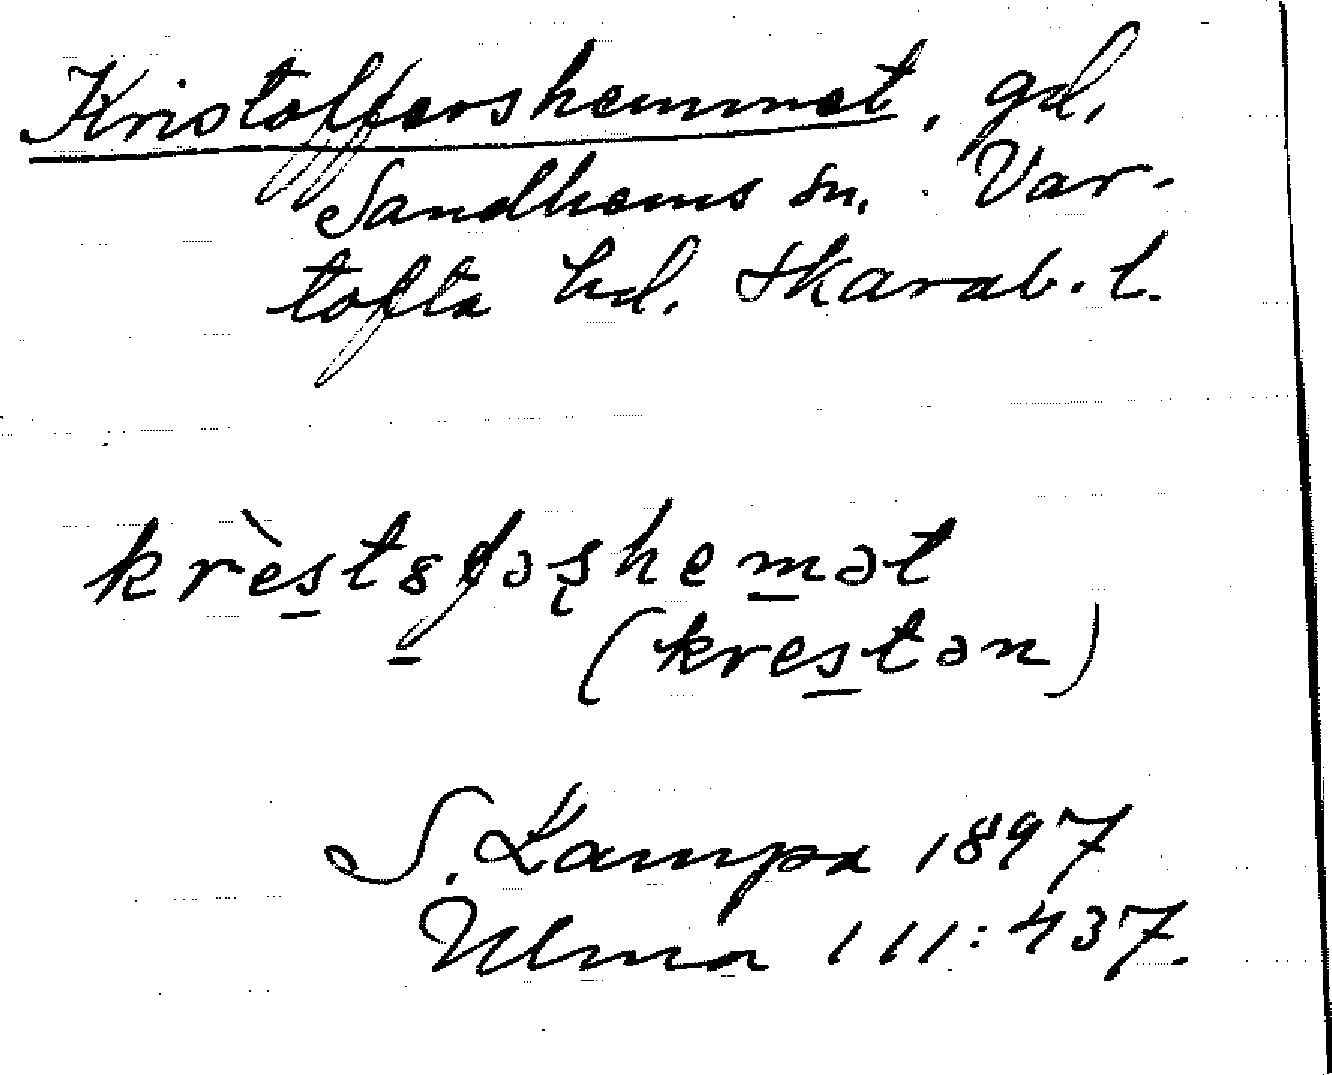 Kristoffershemmet, gd,
Sandhems sn. Var-
tofta hd. Skarab. l.
krèsts̲f̲əʂhem̲ət
(kres̲tən)
S. Lampa 1897
Ulma 111:437.